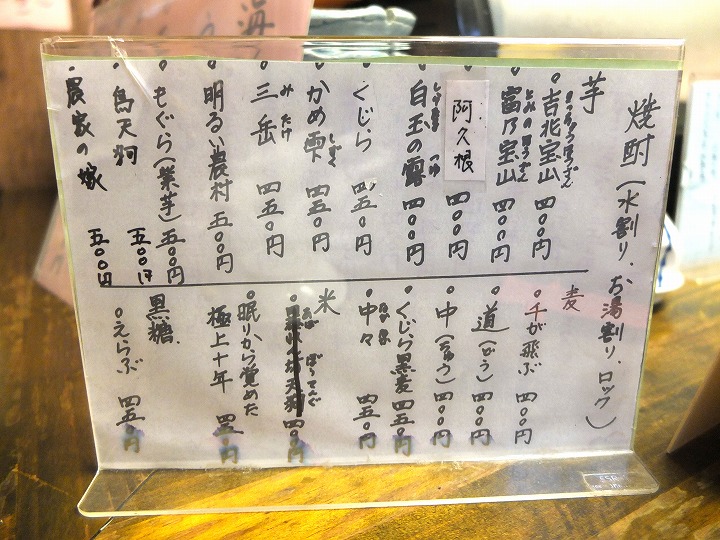 焼酎(水割り、お湯割り、ロック)
芋
・吉兆宝山 四〇〇円
・富乃宝山 四〇〇円
とみのほうざん
・阿久根 四〇〇円
・白玉の露 四〇〇円
しらたま つゆ
・くじら 四五〇円
・かめ雫 四五〇円
しずく
・三岳 四五〇円
みたけ
・明るい農村 五〇〇円
・もぐら(業芋) 五〇〇円
・烏天狗 五〇〇円
・農家の嫁 五〇〇円
麦
・千が飛ぶ 四〇〇円
・道(どう) 四〇〇円
・中(ちゅう) 四〇〇円
・くじら黒麦 四五〇円
・中々 四五〇円
なかなか
米
四〇〇円
・眠りから覚めた
極上十年 四五〇円
黒糖
・えらぶ 四五〇円